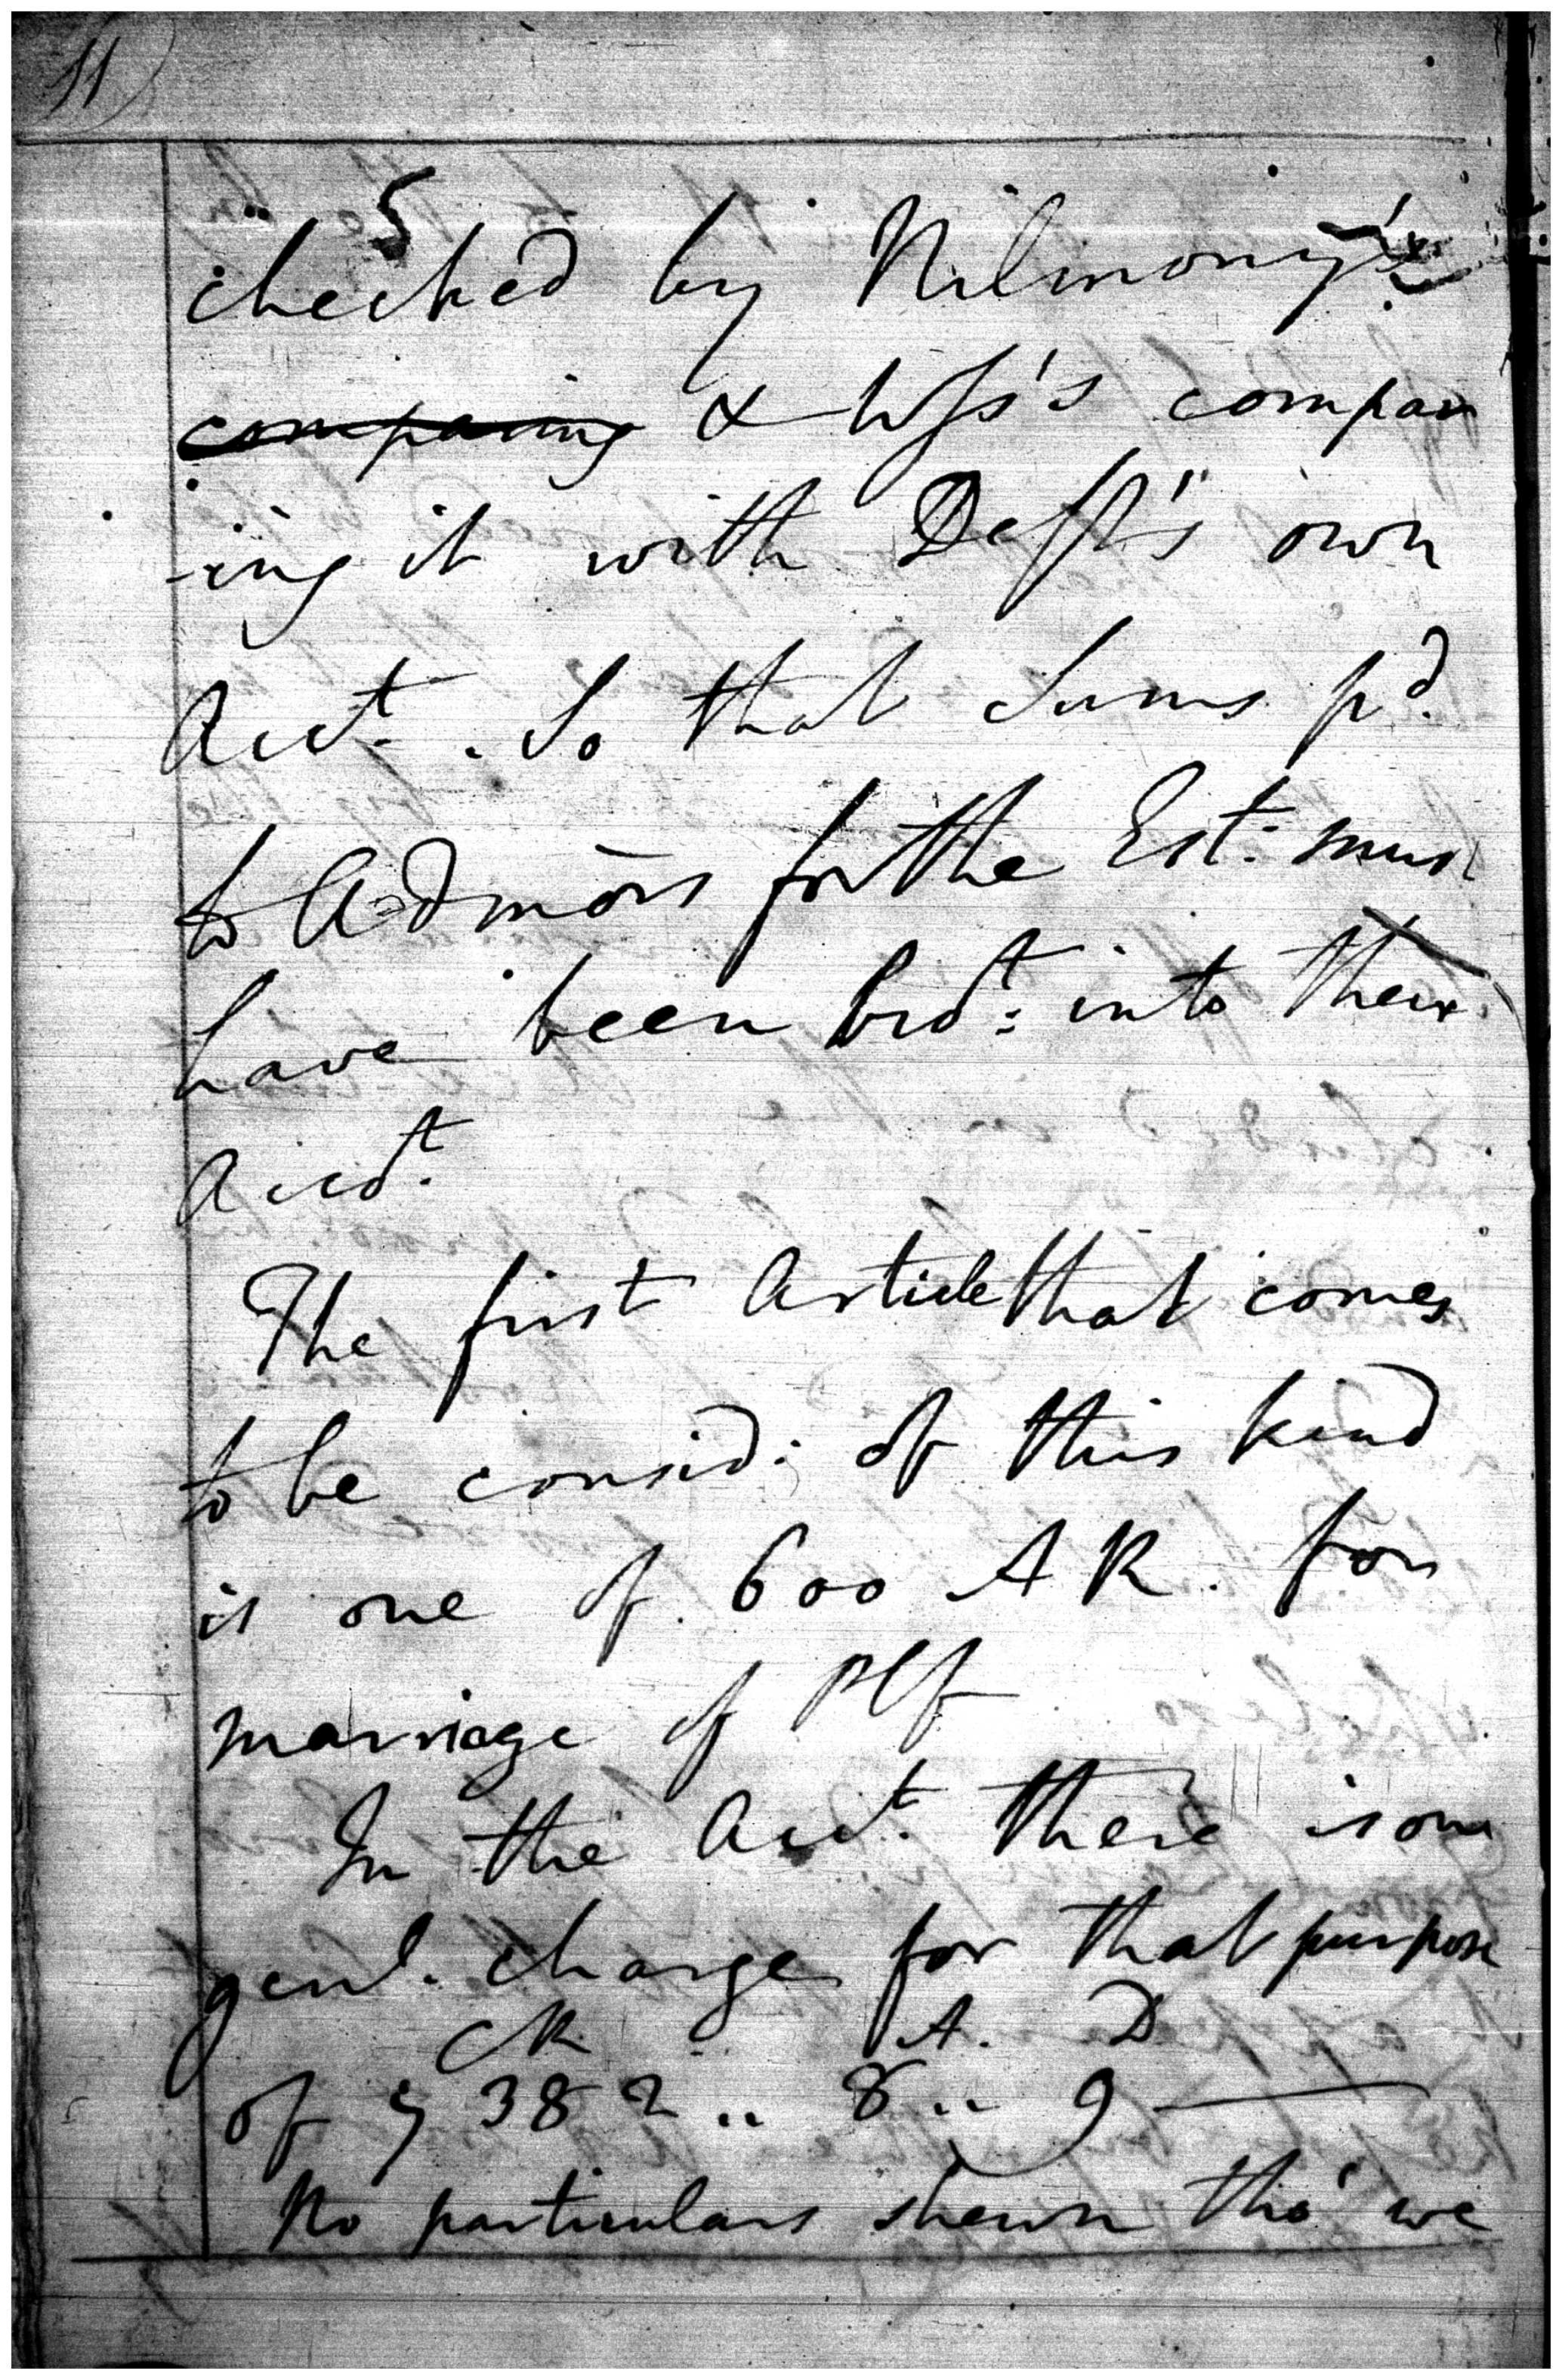 11
5
checked by Nilmony's
comparing & Wss's compar
-ing it with Deft's own
Acct. So that Sums pd.
to Admors for the Est: must
have been brot: into their
Accot.
The first Article that comes
to be consid: of this kind
is one of 600 AR. for
marriage of Plf
In the Acct. there is one
genl. charge for that purpose
CR A. D
of 5382 .. 8 .. 9
No particulars shewn tho' we